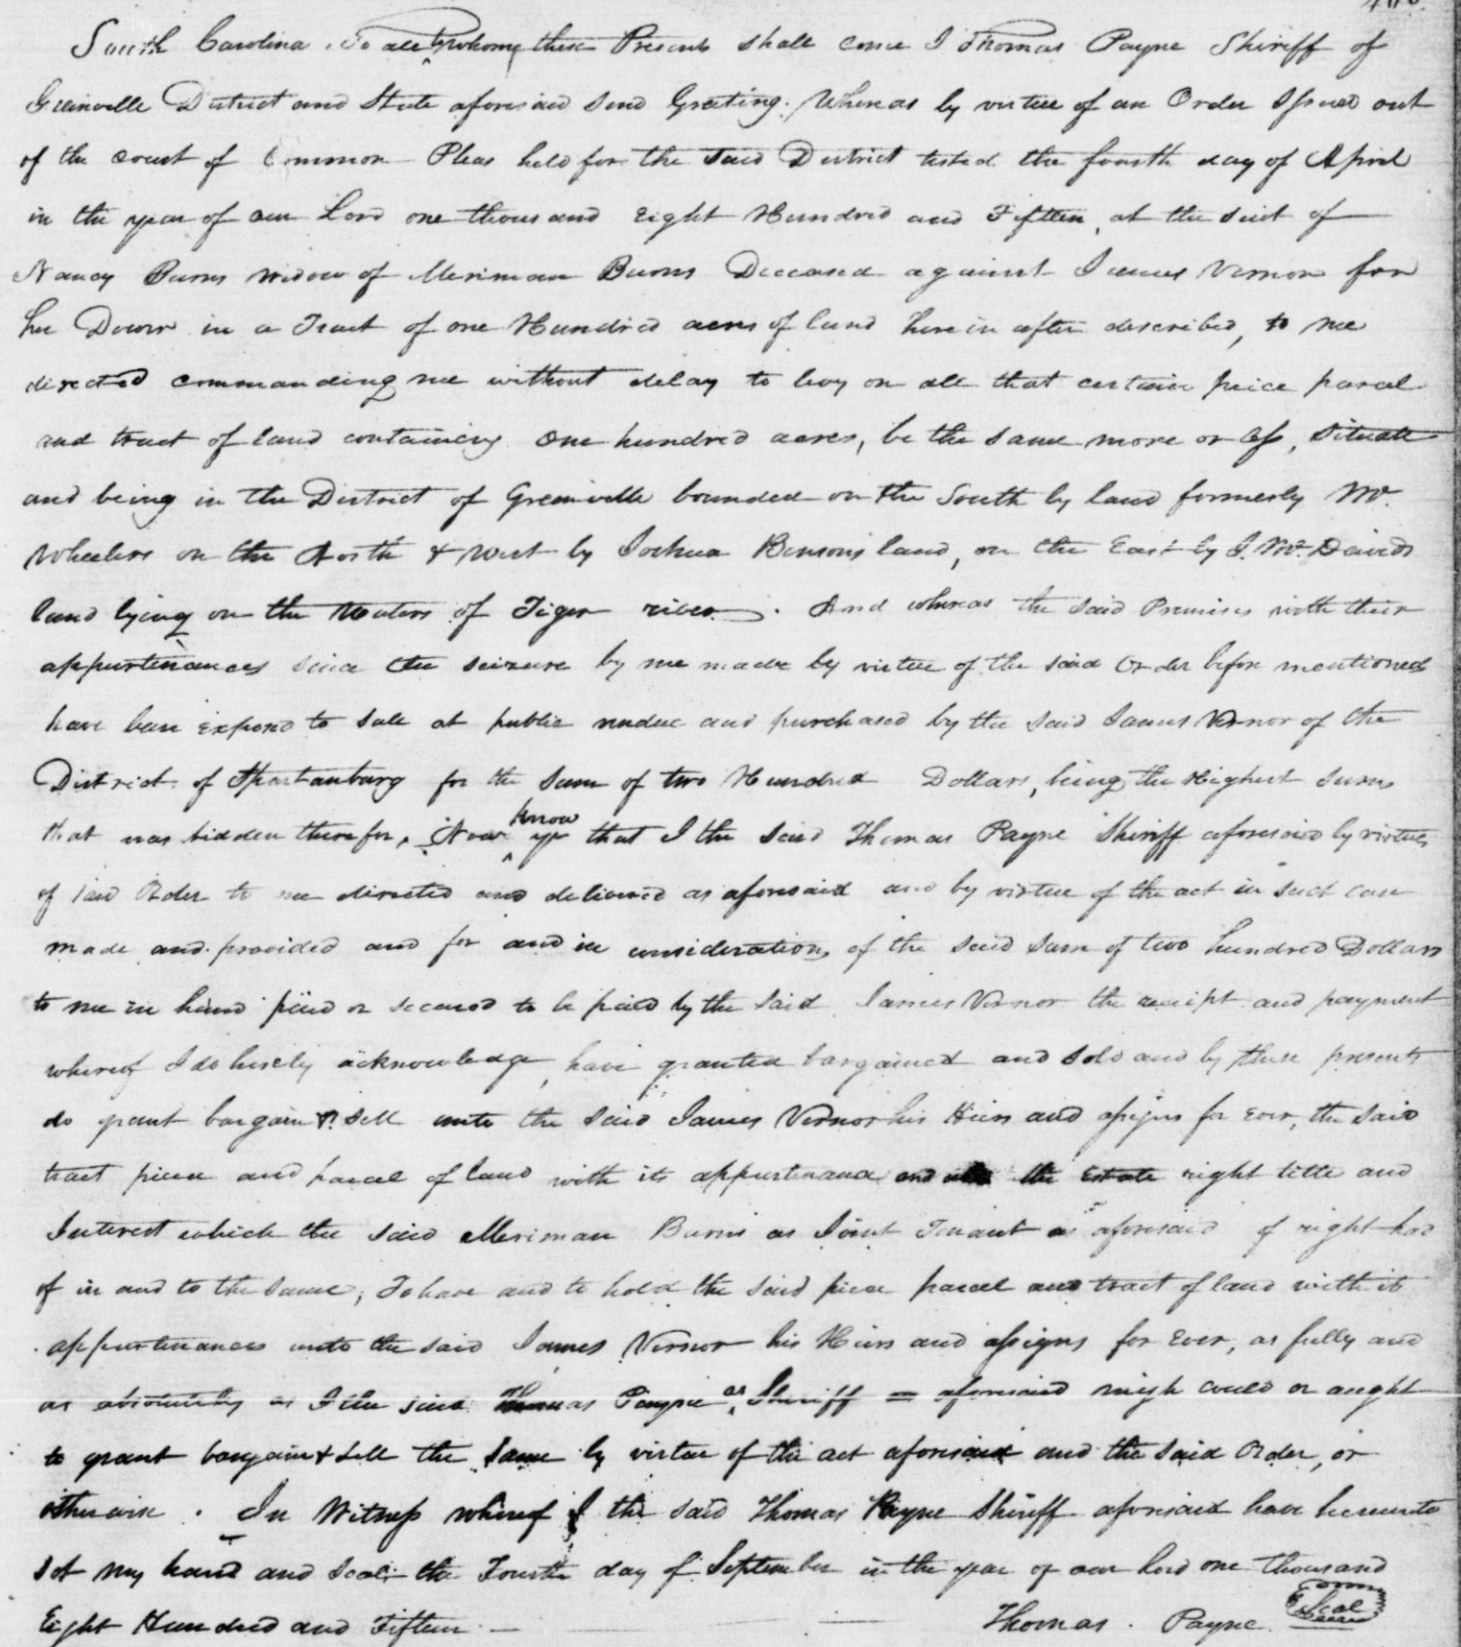 South Carolina. To all to whome these Presents shall come I Thomas Payne Shiriff of
Greinville District and State aforesaid send Greeting. Whereas by virtue of an Order Issued out
of the court of Common Pleas held for the said District tested the fourth day of April
in the year of our Lord one thousand Eight Hundred and Fifteen, at the suit of
Nancy Burns widow of Meriman Burns Deceased against James Vernor for
her Dower in a Tract of one Hundred acres of land herein after described, to me
directed commanding me without delay to levy on all that certain peice parcel
and tract of land containing one hundred acres, be the same more or less, situate
and being in the District of Greenville bounded on the South by land formerly Mr.
Wheelers on the North & West by Joshua Bensons land, on the East by J. Mc. Davids
land lying on the Waters of Tiger river. And whereas the said Premises with their
appurtinances since the seizure by me made by virtue of the said Order before mentioned
have been exposed to sale at public vendue and purchased by the said James Vernor of the
District of Spartanburg for the Sum of two Hundred Dollars, being the Highest sum
that was bidden therefor, Now know ye that I the said Thomas Payne Shiriff aforesaid by virtue
of said Order to me directed and delivered as aforesaid and by virtue of the act in such case
made and provided and for and in consideration of the said sum of two hundred Dollars
to me in hand paid or secured to be paid by the said James Vernor the receipt and payment
whereof I do hereby acknowledge, have granted bargained and sold and by these presents
do grant bargain & sell unto the said James Vernor his Heirs and assigns for Ever, the said
tract piece and parcel of land with its appurtenance and the Estate right title and
Interest which the said Meriman Burns as Joint Tenant as aforesaid of right had
of in and to the same, To have and to hold the said piece parcel and tract of land with its
appurtenances unto the said James Vernor his Heirs and assigns for Ever, as fully and
as absolutely as I the said Thomas Payne as Shiriff = aforesaid migh could or aught
to grant bargain & sell the same by virtue of the act aforesaid and the said Order, or
otherwise. In Witness whereof I the said Thomas Payne Shiriff aforesaid have hereunto
set my hand and seal the Fourth day of September in the year of our lord one thousand
Eight Hundred and Fifteen — Thomas Payne Seal